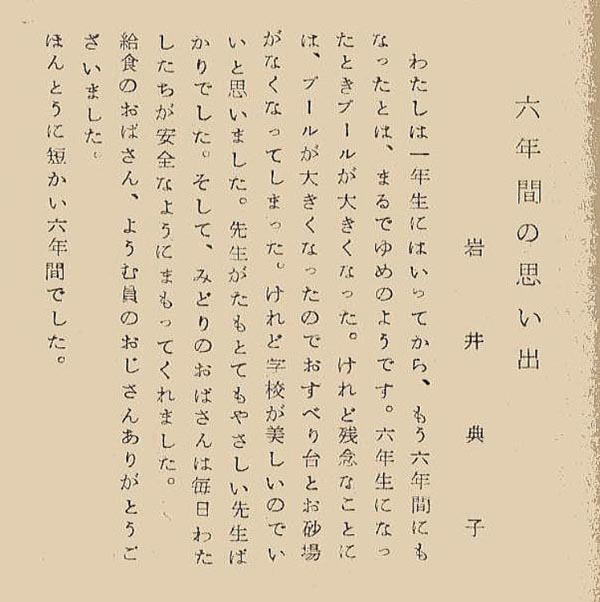 六年間の思い出
岩井典子
わたしは一年生にはいってから、もう六年間にも
なったとは、まるでゆめのようです。六年生になっ
たときプールが大きくなった。けれど残念なことに
は、プールが大きくなったのでおすべり台とお砂場
がなくなってしまった。けれど学校が美しいのでい
いと思いました。先生がたもとてもやさしい先生ば
かりでした。そして、みどりのおばさんは毎日わた
したちが安全なようにまもってくれました。
給食のおばさん、ようむ員のおじさんありがとうご
ざいました。
ほんとうに短かい六年間でした。